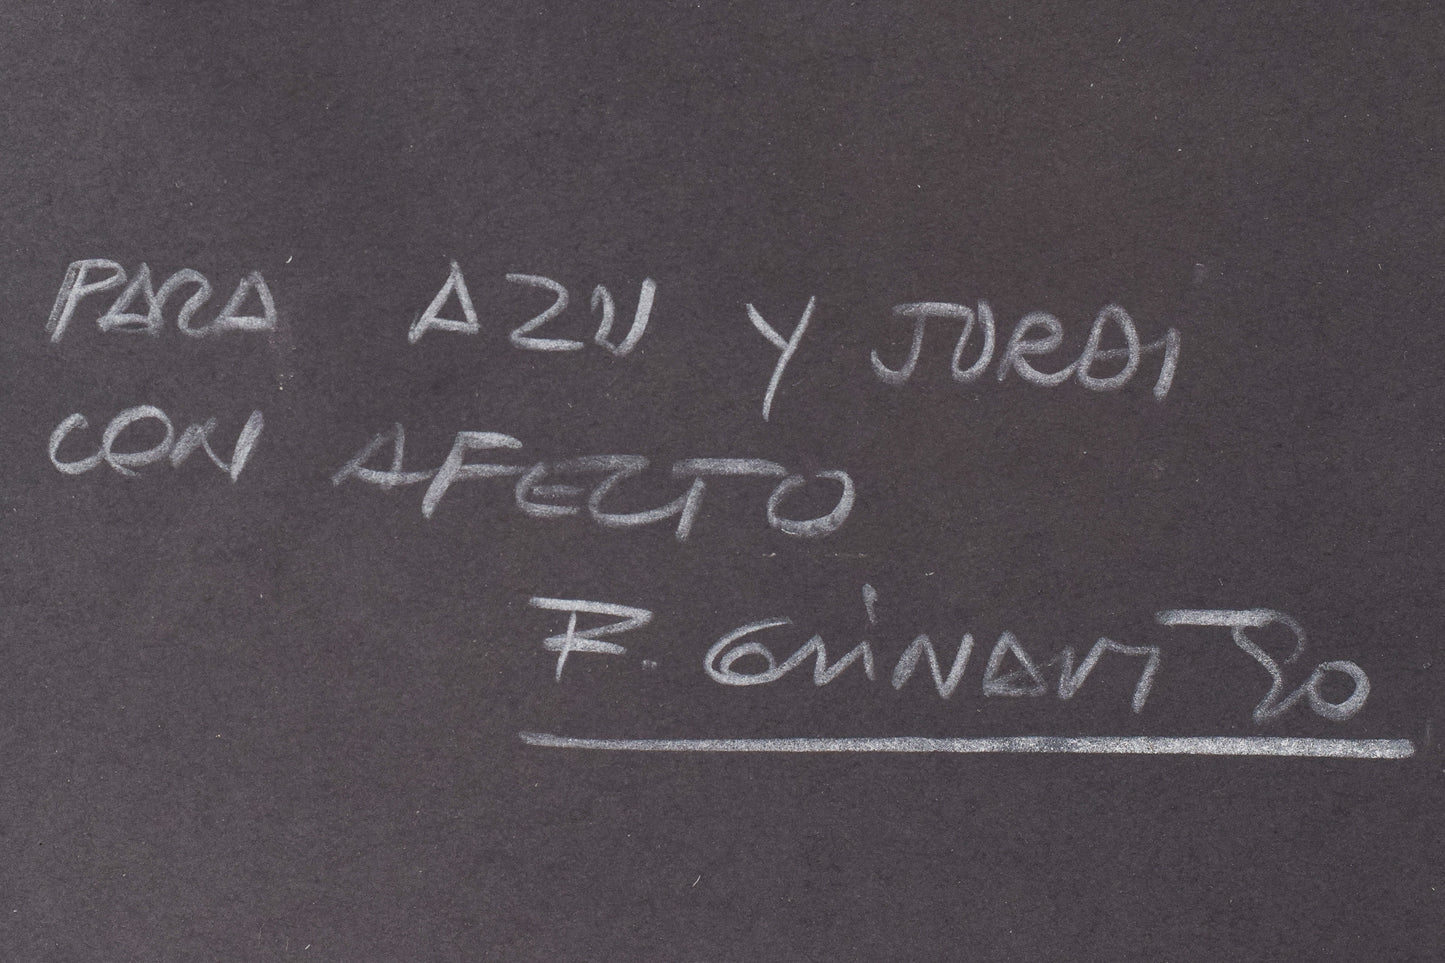 PARA AZU Y JORDI
CON AFECTO
F. GUINART 90